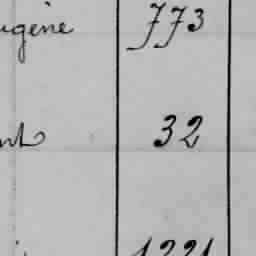 ugène 773
nt 32
1221